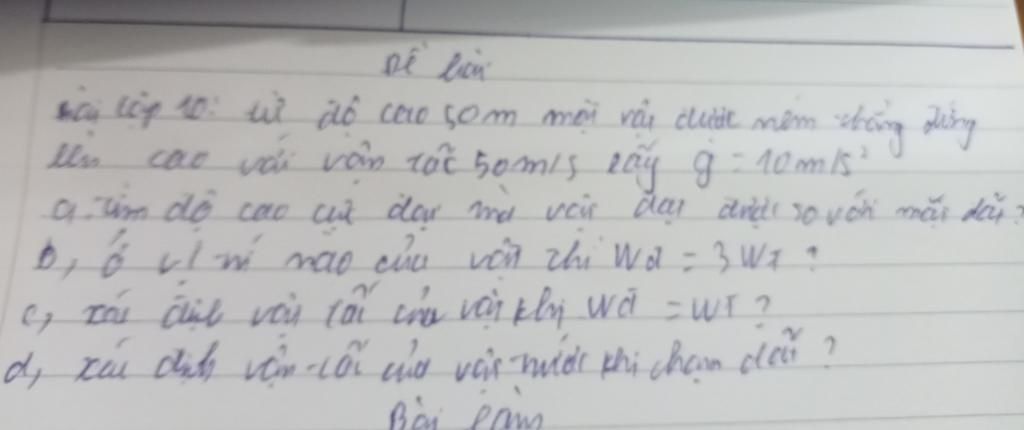 Đề bài
bài lớp 10: từ độ cao 50m một vật được ném thẳng đứng
lên cao với vận tốc 50m/s lấy g = 10m/s²
a. tìm độ cao cực đại mà vật đạt được so với mặt đất?
b, ở vị trí nào của vật thì Wđ = 3Wt?
c, xác định vận tốc của vật khi Wđ = Wt?
d, xác định vận tốc của vật trước khi chạm đất?
Bài làm